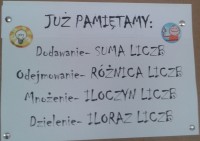 JUŻ PAMIĘTAMY:
Dodawanie- SUMA LICZB
Odejmowanie- RÓŻNICA LICZB
Mnożenie- ILOCZYN LICZB
Dzielenie- ILORAZ LICZB